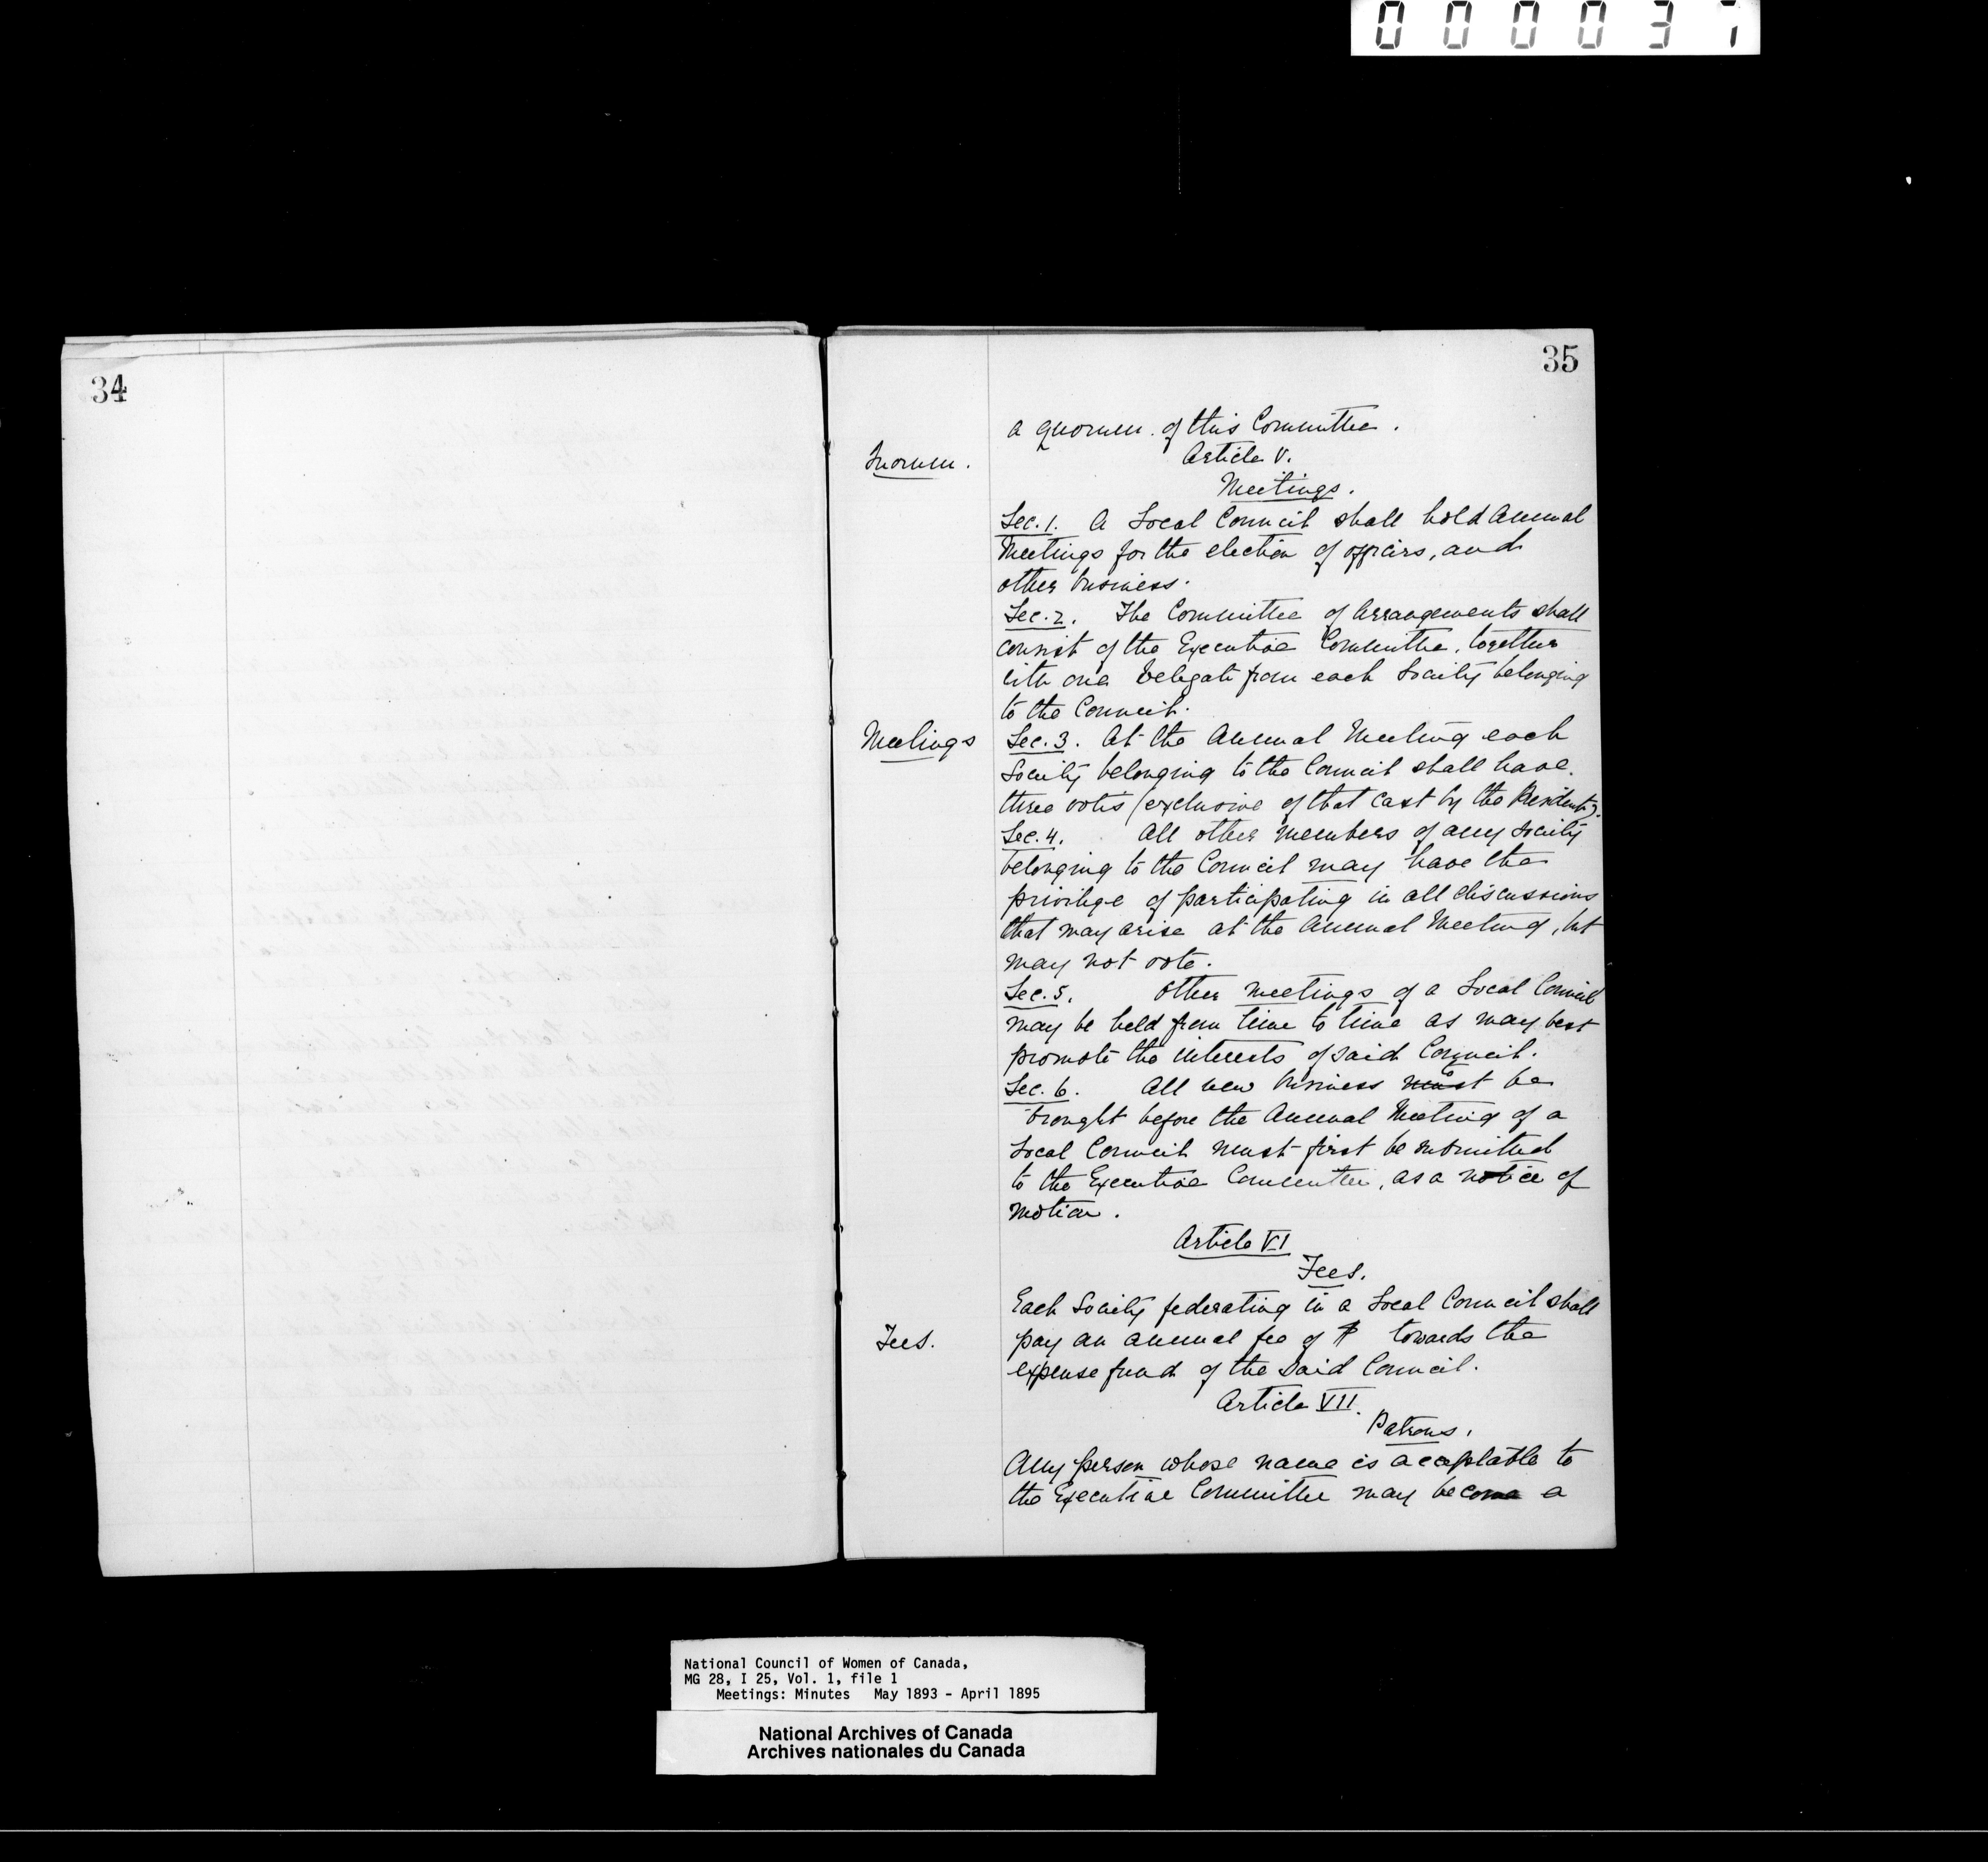 000037
34
35
a quorum. of this Committee.
Quorum.
Article V.
Meetings.
Sec. 1. A Local Council shall hold Annual
Meetings for the election of officers, and
other business.
Sec. 2. The Committee of Arrangements shall
consist of the Executive Committee, together
with one Delegate from each Society belonging
to the Council.
Meetings
Sec. 3. At the Annual Meeting each
Society belonging to the Council shall have
three votes (exclusive of that cast by the President).
Sec. 4. All other members of any Society
belonging to the Council may have the
privilege of participating in all discussions
that may arise at the Annual Meeting, but
may not vote.
Sec. 5. Other meetings of a Local Council
may be held from time to time as may best
promote the interests of said Council.
Sec. 6. All new business must to be
brought before the Annual Meeting of a
Local Council must first be submitted
to the Executive Committee, as a notice of
motion.
Article VI
Fees.
Each Society federating in a Local Council shall
Fees.
pay an annual fee of $ towards the
expense fund of the said Council.
Article VII.
Patrons.
Any person whose name is acceptable to
the Executive Committee may become a
National Council of Women of Canada,
MG 28, I 25, Vol. 1, file 1
Meetings: Minutes May 1893 - April 1895
National Archives of Canada
Archives nationales du Canada